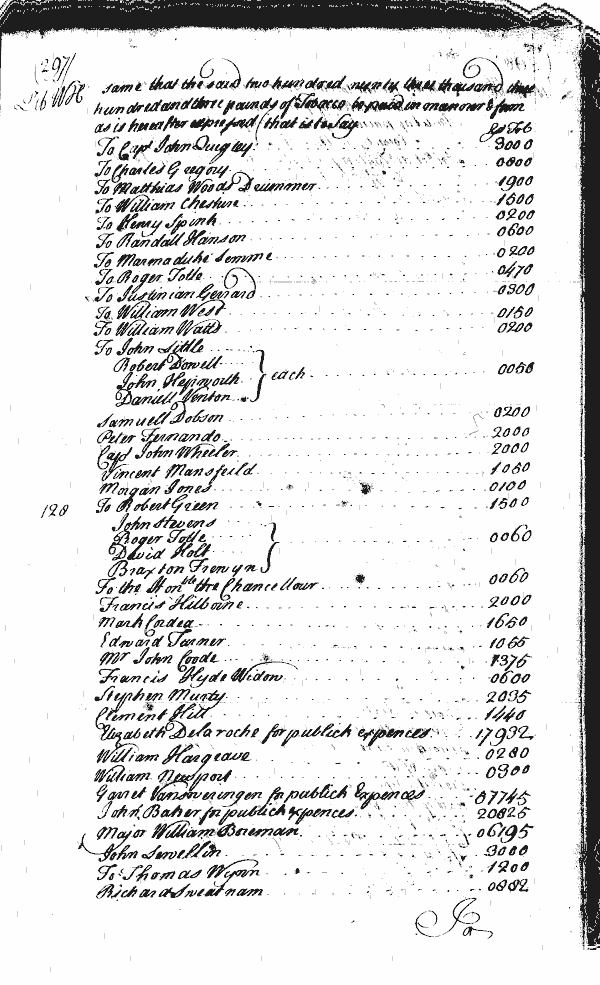 (297)
Lib WH same that the said two hundred ninty three thousand three
hundred and three pounds of Tobacco to paid in manner & form
as is hereafter expressed (that is to Say
To Capt John Quigley 3000
To Charles Gregory 0800
To Matthias Woods Drummer 1900
To William Cheshire 1500
To Henry Spink 0200
To Randall Hanson 0600
To Marmaduke Semme 0200
To Roger Tolle 0470
To Justinian Gerrard 0300
To William West 0150
To William Watts 0200
To John Little
Robert Dowell
John Hepworth each 0050
Daniell Venton
Samuell Dobson 0200
Peter Fernando 2000
Capt John Wheeler 2000
Vincent Mansfeild 1050
Morgan Jones 0100
128 To Robert Green 1500
John Stevens
Roger Tolle 0060
David Holt
Braxton Frewyn
To the Honble the Chancellour 0060
Francis Hilborne 2000
Mark Cordea 1650
Edward Turner 1055
Mr John Coode 1375
Francis Hyde Widow 0600
Stephen Murty 2035
Clement Hill 1440
Elizabeth Delaroche for publick expences 17932
William Hargeave 0280
William Newport 0300
Garret Vansweringen for publick Expences 07745
John Baker for publick expences 20825
Major William Boreman 06195
John Lewellin 3000
To Thomas Wynn 1200
Richard Sweatnam 0882
To